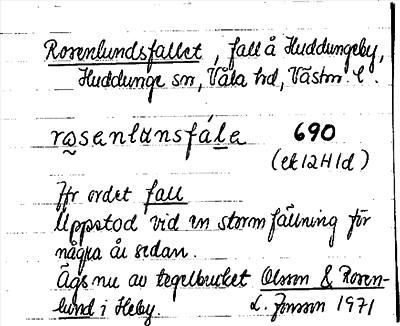 Rosenlundsfallet, fall å Huddungeby,
Huddunge sn, Våla hd, Västm. l.
rosenlunsfála 690
(ek 12H1d)
Jfr ordet fall
Uppstod vid en stormfällning för
några år sedan.
Ägs nu av tegelbruket Olsson & Rosen-
lund i Heby. L. Jonsson 1971